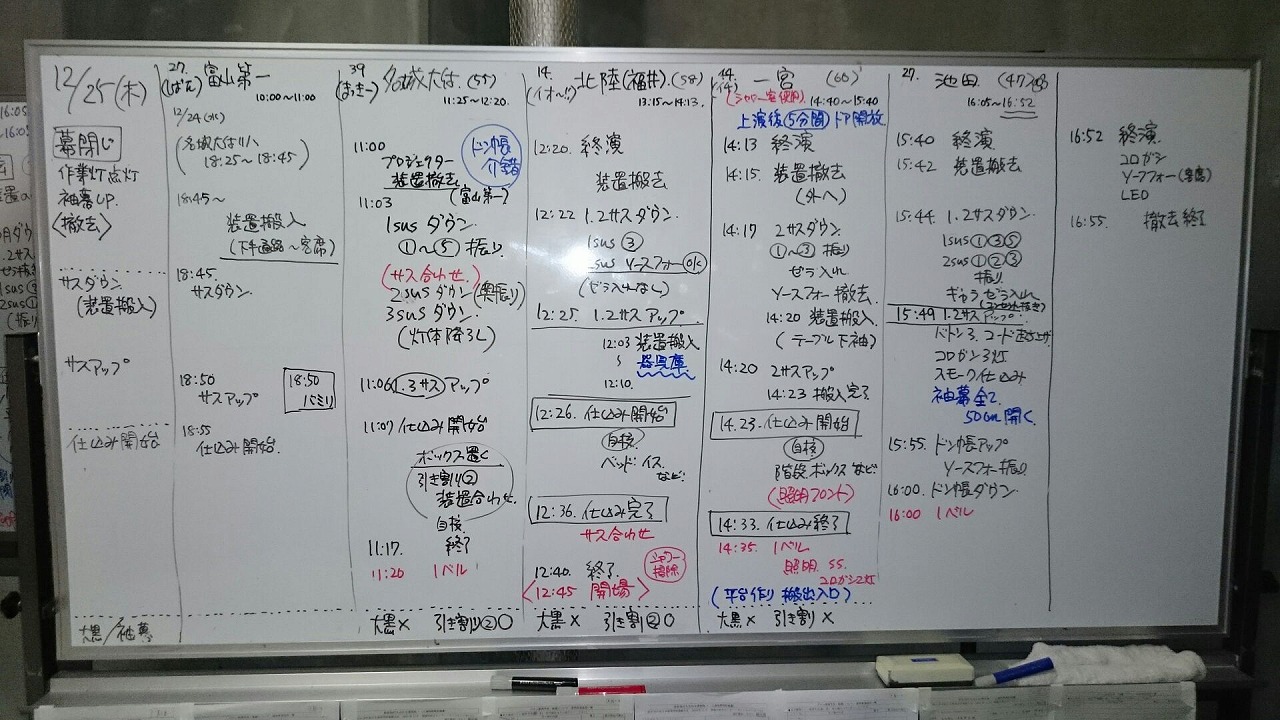 12/25(木)
幕閉じ
作業灯点灯
袖幕UP.
〈撤去〉
サスダウン
(装置搬入)
サスアップ
仕込み開始
大黒/袖幕
27.
富山第一
10:00〜11:00
12/24(水)
(名城大付リハ
18:25〜18:45)
18:45〜
装置搬入
(下手通路〜客席)
18:45.
サスダウン.
18:50
サスアップ
18:50
バミリ
18:55
仕込み開始.
39
名城大付. (55)
11:25〜12:20.
ドン帳
介錯
11:00
プロジェクター
装置撤去
(富山第一)
11:03
1sus ダウン
①〜⑤ 振り
(サス合わせ.)
2sus ダウン(奥振り)
3sus ダウン.
(灯体降ろし)
11:06 1.3サスアップ
11:07 仕込み開始
ボックス置く
引き割り②
装置合わせ.
自核
11:17. 終了
11:20 1ベル
大黒× 引き割り②○
14.
北陸(福井).(58)
13:15〜14:13.
12:20. 終演
装置撤去
12:22 1.2サスダウン.
1sus ③
2sus ソースフォー OK
(ゼラ入れなし)
12:25. 1.2サスアップ.
12:03 装置搬入
〜 器具庫
12:10.
12:26. 仕込み開始
自核
ベッド・イス.
など.
12:36. 仕込み完了
サス合わせ
12:40. 終了.
シャワー
掃除
〈12:45 開場〉
大黒× 引き割②○
一宮 (60)
(シャワー室使用) 14:40〜15:40
上演後⑤分間 ドア開放
14:13 終演
14:15. 装置撤去
(外へ)
14:17 2サスダウン
①〜③ 振り
ゼラ入れ
ソースフォー撤去.
14:20 装置搬入.
(テーブル下袖)
14:20 2サスアップ
14:23 搬入完了
14.23. 仕込み開始
自核
階段.ボックス など
(照明フロント)
14:33. 仕込み終了
14:35. 1ベル
照明 SS.
コロガシ2灯
(平台作り 搬出入口)
大黒× 引き割り×
27.
池田. (47)
16:05〜16:52
15:40 終演
15:42 装置撤去
15:44 1.2サスダウン
1sus①③⑤
2sus①②③
振り
ゼラ入れ
15:49 1.2サスアップ.
バトン3. コード
コロガシ3灯
スモーク仕込み
袖幕全て
50cm開く
15:55. ドン帳アップ
ソースフォー振り
16:00. ドン帳ダウン.
16:00 1ベル
16:52 終演
コロガシ
ソースフォー(客席)
LED
16:55. 撤去終了